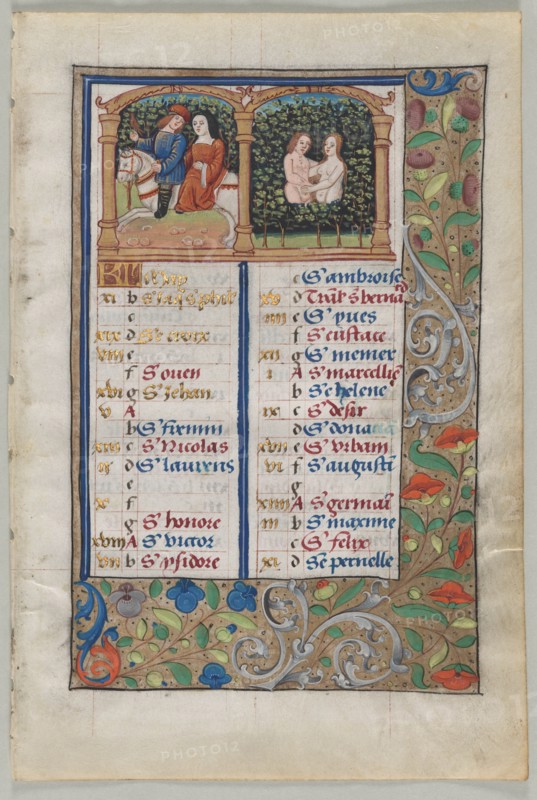 KL May
xi b S Iaq s phile
c
xix d Ste croix
viii e
f S ouen
xvi g S Jehan
v A
b S firmin
xiii c S Nicolas
ii d S laurens
e
x f
g S honore
xviii A S victor
vii b S ysidore
c S ambroise
xv d Tranl s bernard
iiii e S yues
f S eustace
xii g S memer
i A S marcellie
b Se helene
ix c S desir
d S dona
xvii e S vrbain
vi f S augusti
g
xiiii A S germai
iii b S maxime
c S felix
xi d Se pernelle
PHOTO12